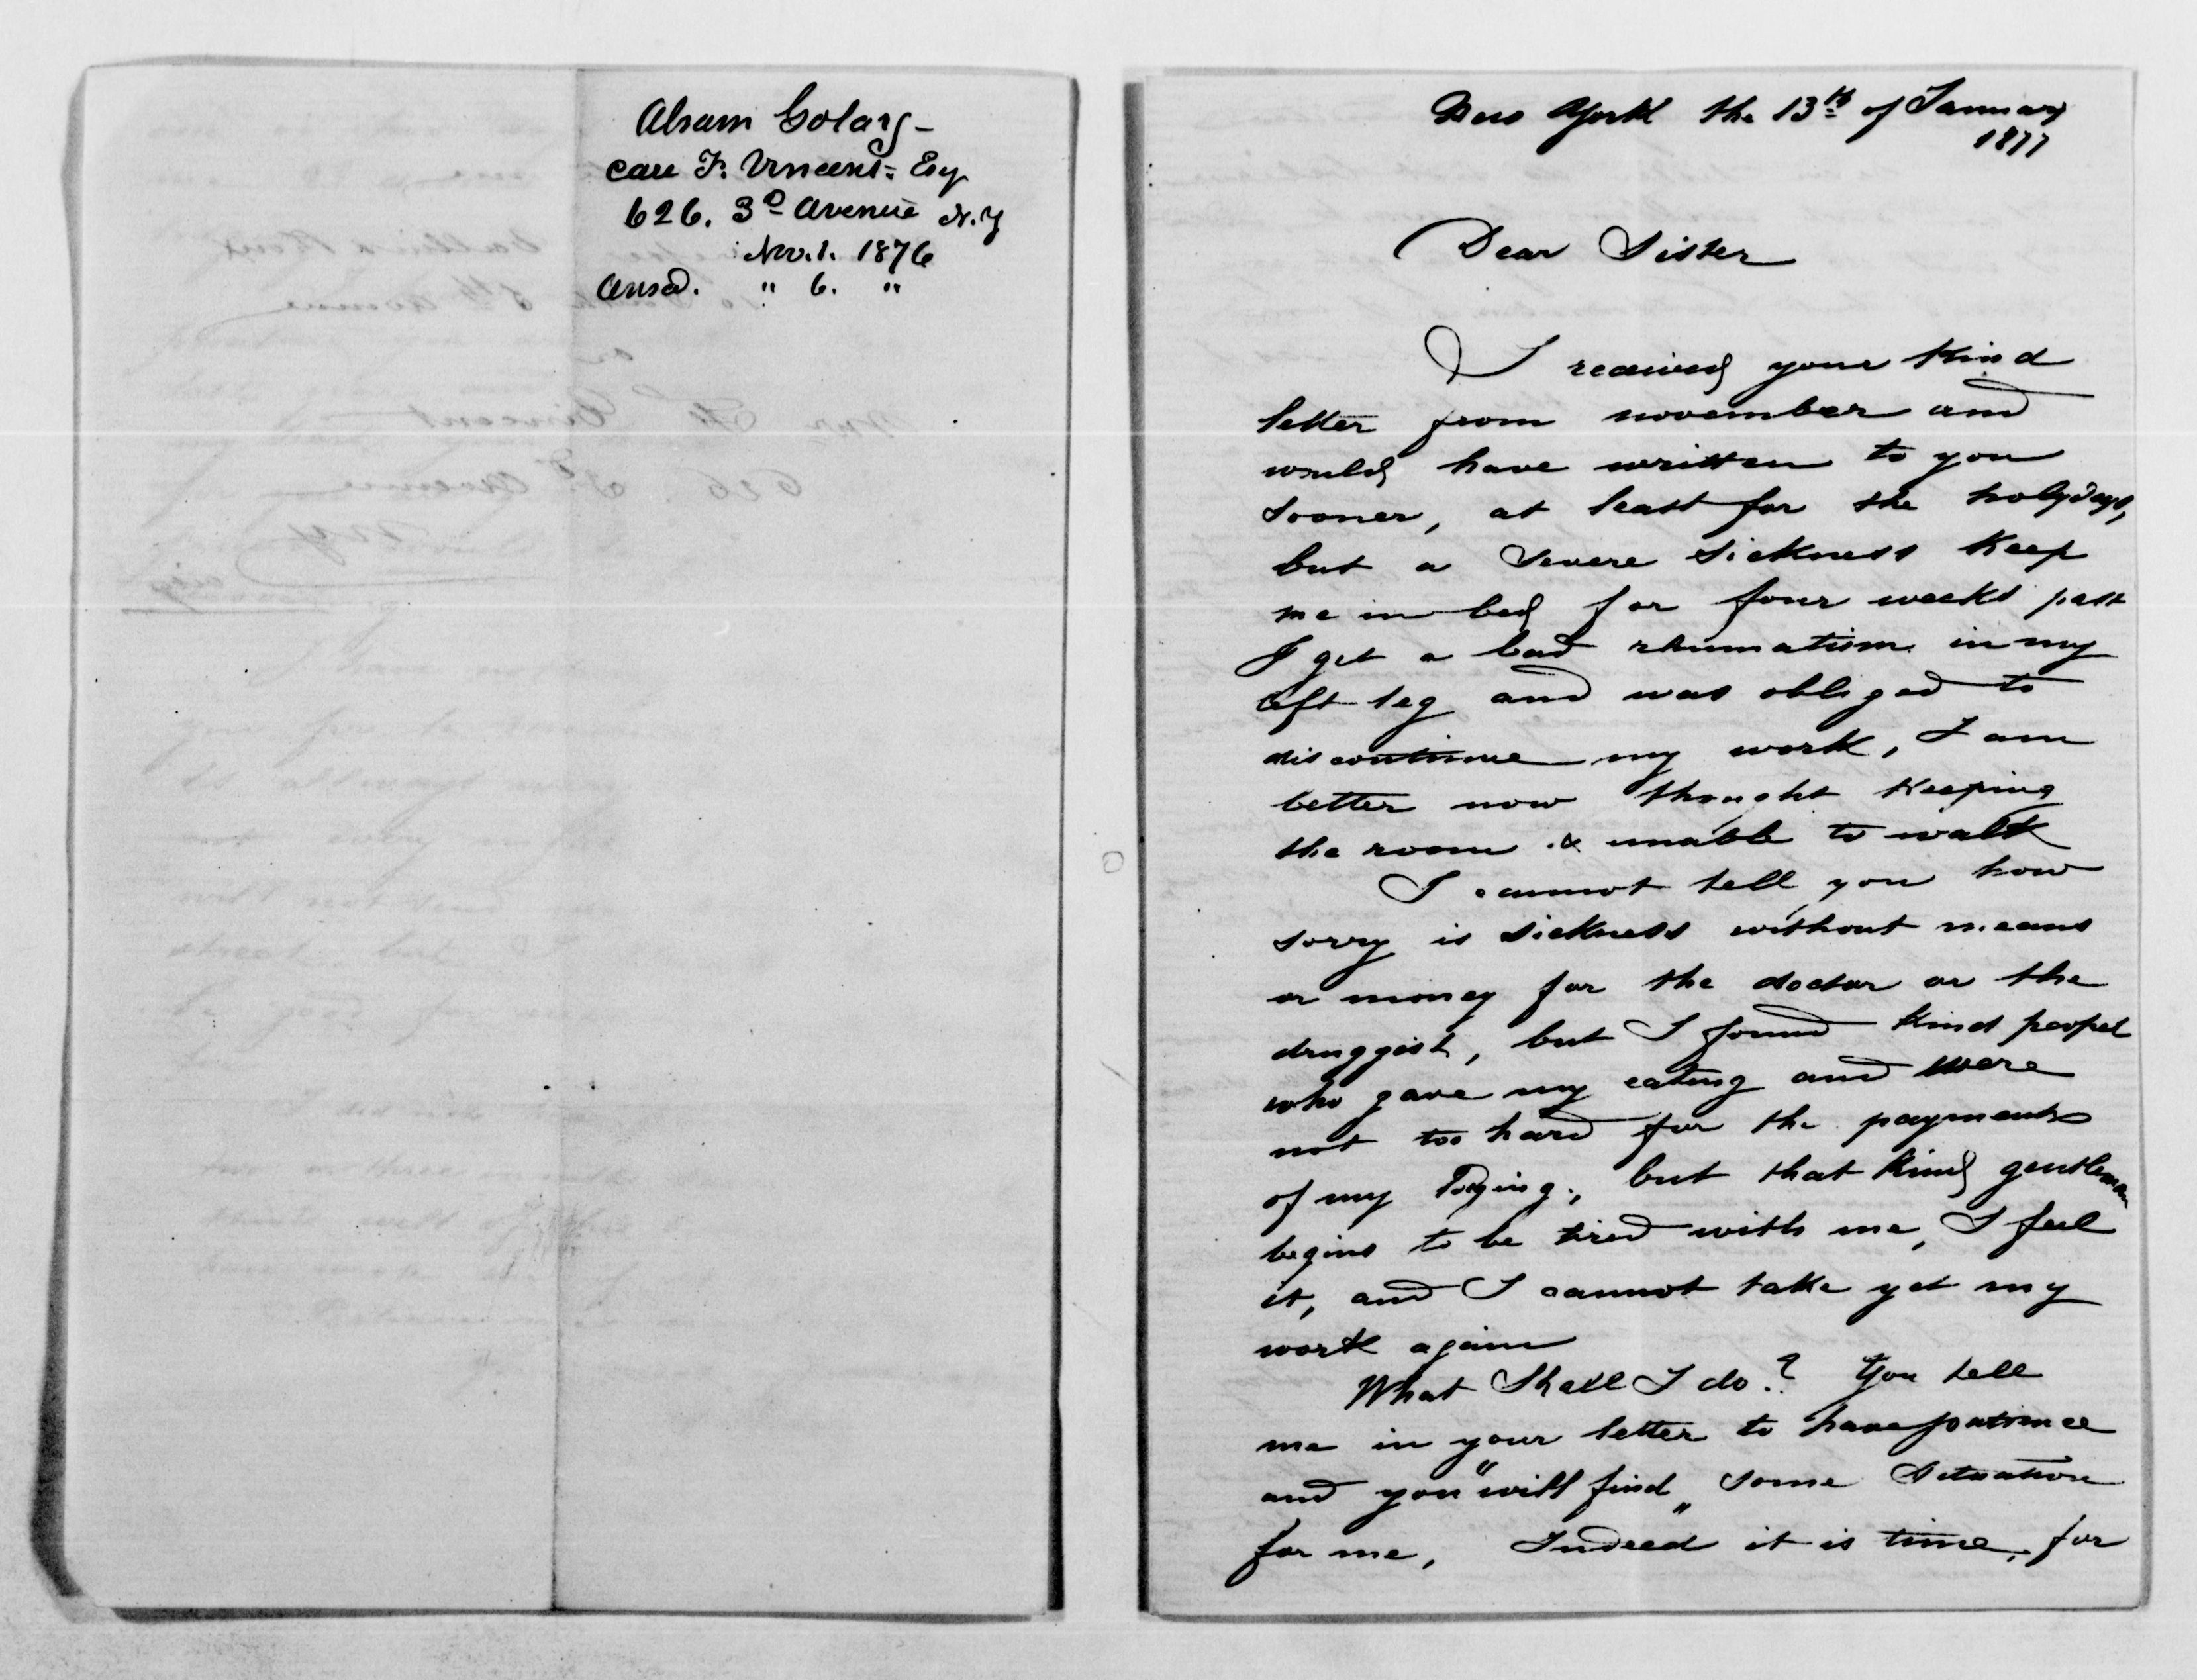 Abram Golay -
care F. Vincent Esq
626. 3ᴰ Avenue N.Y
Nov. 1. 1876
Ansd. " 6. "
New York the 13th of January
1877
Dear Sister
I received your kind
letter from november and
would have written to you
sooner, at least for the holydays,
but a severe sickness keep
me in bed for four weeks past
I get a bad rhumatism in my
left leg and was obliged to
discontinue my work, I am
better now thought keeping
the room & unable to walk
I cannot tell you how
sorry is sickness without means
or money for the doctor or the
druggist, but I found kind peopel
who gave my eating and were
not too hard for the payments
of my loging, but that kind gentleman
begins to be tired with me, I feel
it, and I cannot take yet my
work again
What shall I do? You tell
me in your letter to have patience
and you "will find" some situation
for me, Indeed it is time, for